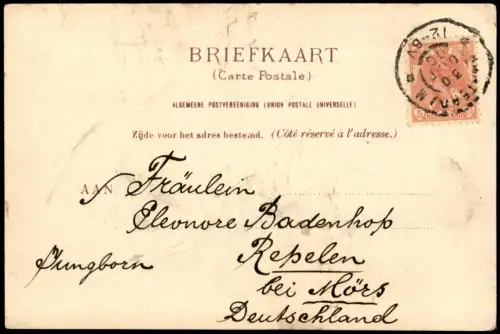 BRIEFKAART.
(Carte Postale)
ALGEMEENE POSTVEREENIGING (UNION POSTALE UNIVERSELLE)
Zijde voor het adres bestemd. (Côté réservé à l'adresse.)
AAN Fräulein
Eleonore Badenhop
Repelen
Jungborn
bei Mörs
Deutschland